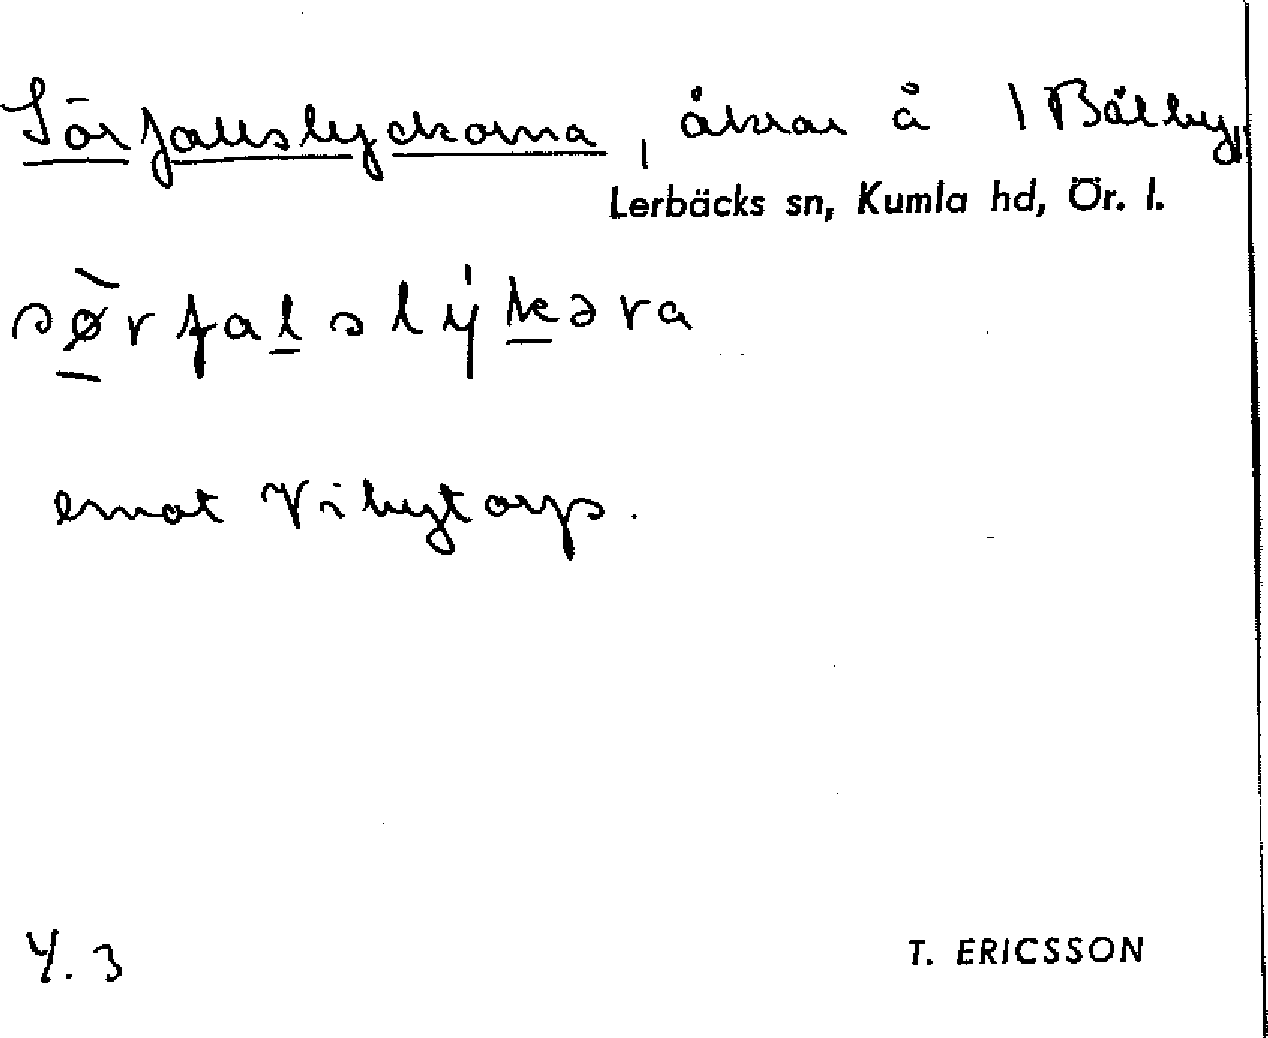 Sörfallslyckorna, åkrar å 1 Bälby,
Lerbäcks sn, Kumla hd, Ör. l.
sø̀rfalslýkəra
emot Vibytorp.
Y. 3
T. ERICSSON